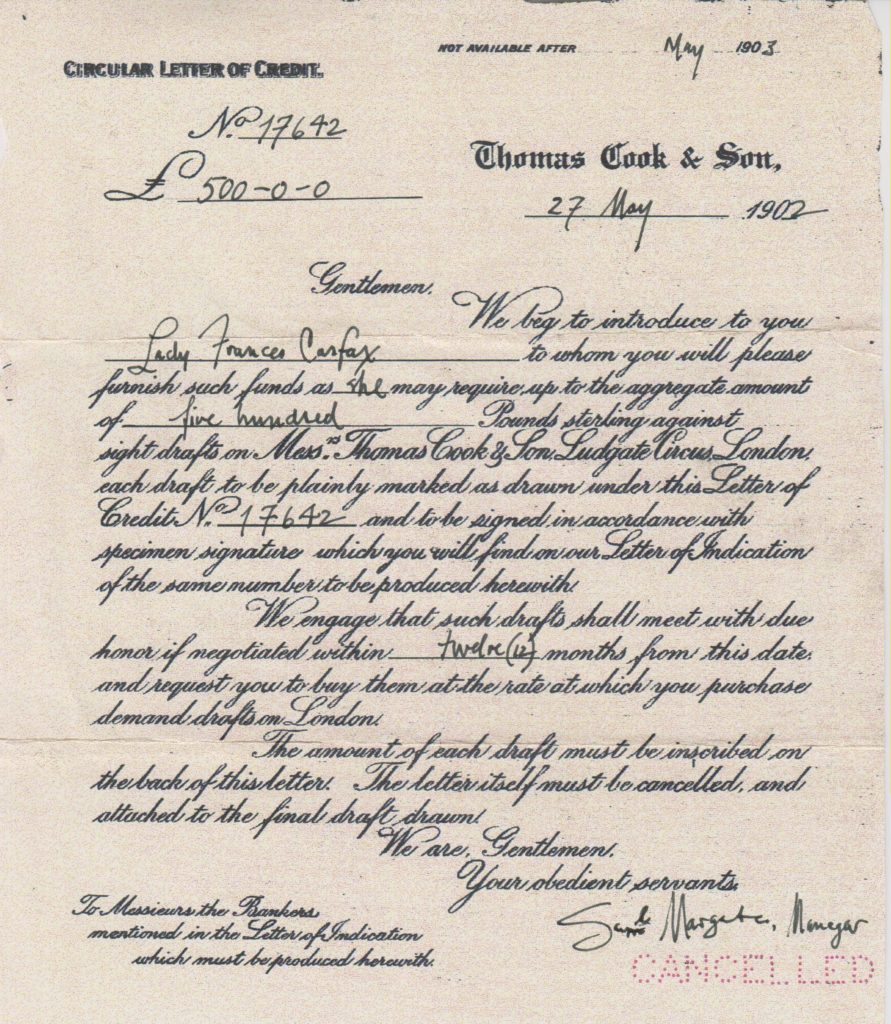 NOT AVAILABLE AFTER May 1903
CIRCULAR LETTER OF CREDIT.
No. 17642
£ 500-0-0
Thomas Cook & Son,
27 May 1902
Gentlemen,
We beg to introduce to you
Lady Frances Carfax to whom you will please
furnish such funds as she may require up to the aggregate amount
of five hundred Pounds sterling against
sight drafts on Messrs. Thomas Cook & Son, Ludgate Circus, London,
each draft to be plainly marked as drawn under this Letter of
Credit No. 17642 and to be signed in accordance with
specimen signature which you will find on our Letter of Indication
of the same number to be produced herewith.
We engage that such drafts shall meet with due
honor if negotiated within twelve (12) months from this date,
and request you to buy them at the rate at which you purchase
demand drafts on London.
The amount of each draft must be inscribed on
the back of this letter. The letter itself must be cancelled, and
attached to the final draft drawn.
We are, Gentlemen,
Your obedient servants,
To Messieurs the Bankers
mentioned in the Letter of Indication
which must be produced herewith.
Manager
CANCELLED